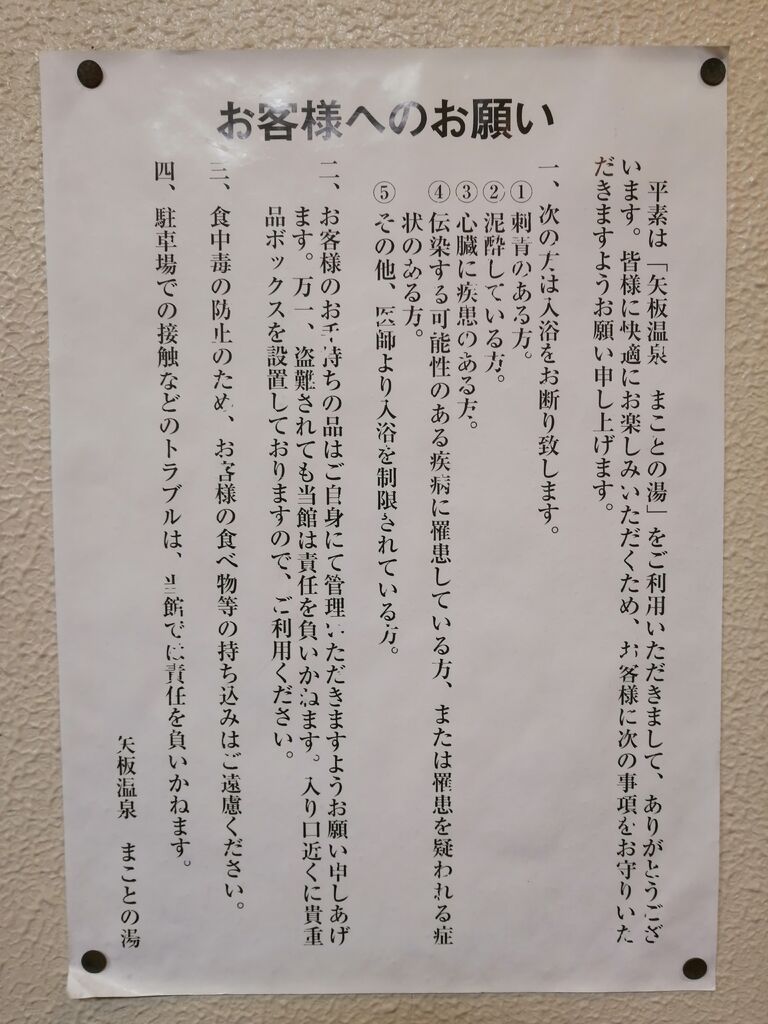 お客様へのお願い
平素は「矢板温泉　まことの湯」をご利用いただきまして、ありがとうござ
います。皆様に快適にお楽しみいただくため、お客様に次の事項をお守りいた
だきますようお願い申し上げます。
一、次の方は入浴をお断り致します。
①刺青のある方。
②泥酔している方。
③心臓に疾患のある方。
④伝染する可能性のある疾病に罹患している方、または罹患を疑われる症
状のある方。
⑤その他、医師より入浴を制限されている方。
二、お客様のお手持ちの品はご自身にて管理いただきますようお願い申しあげ
ます。万一、盗難されても当館は責任を負いかねます。入り口近くに貴重
品ボックスを設置しておりますので、ご利用ください。
三、食中毒の防止のため、お客様の食べ物等の持ち込みはご遠慮ください。
四、駐車場での接触などのトラブルは、当館では責任を負いかねます。
矢板温泉　まことの湯